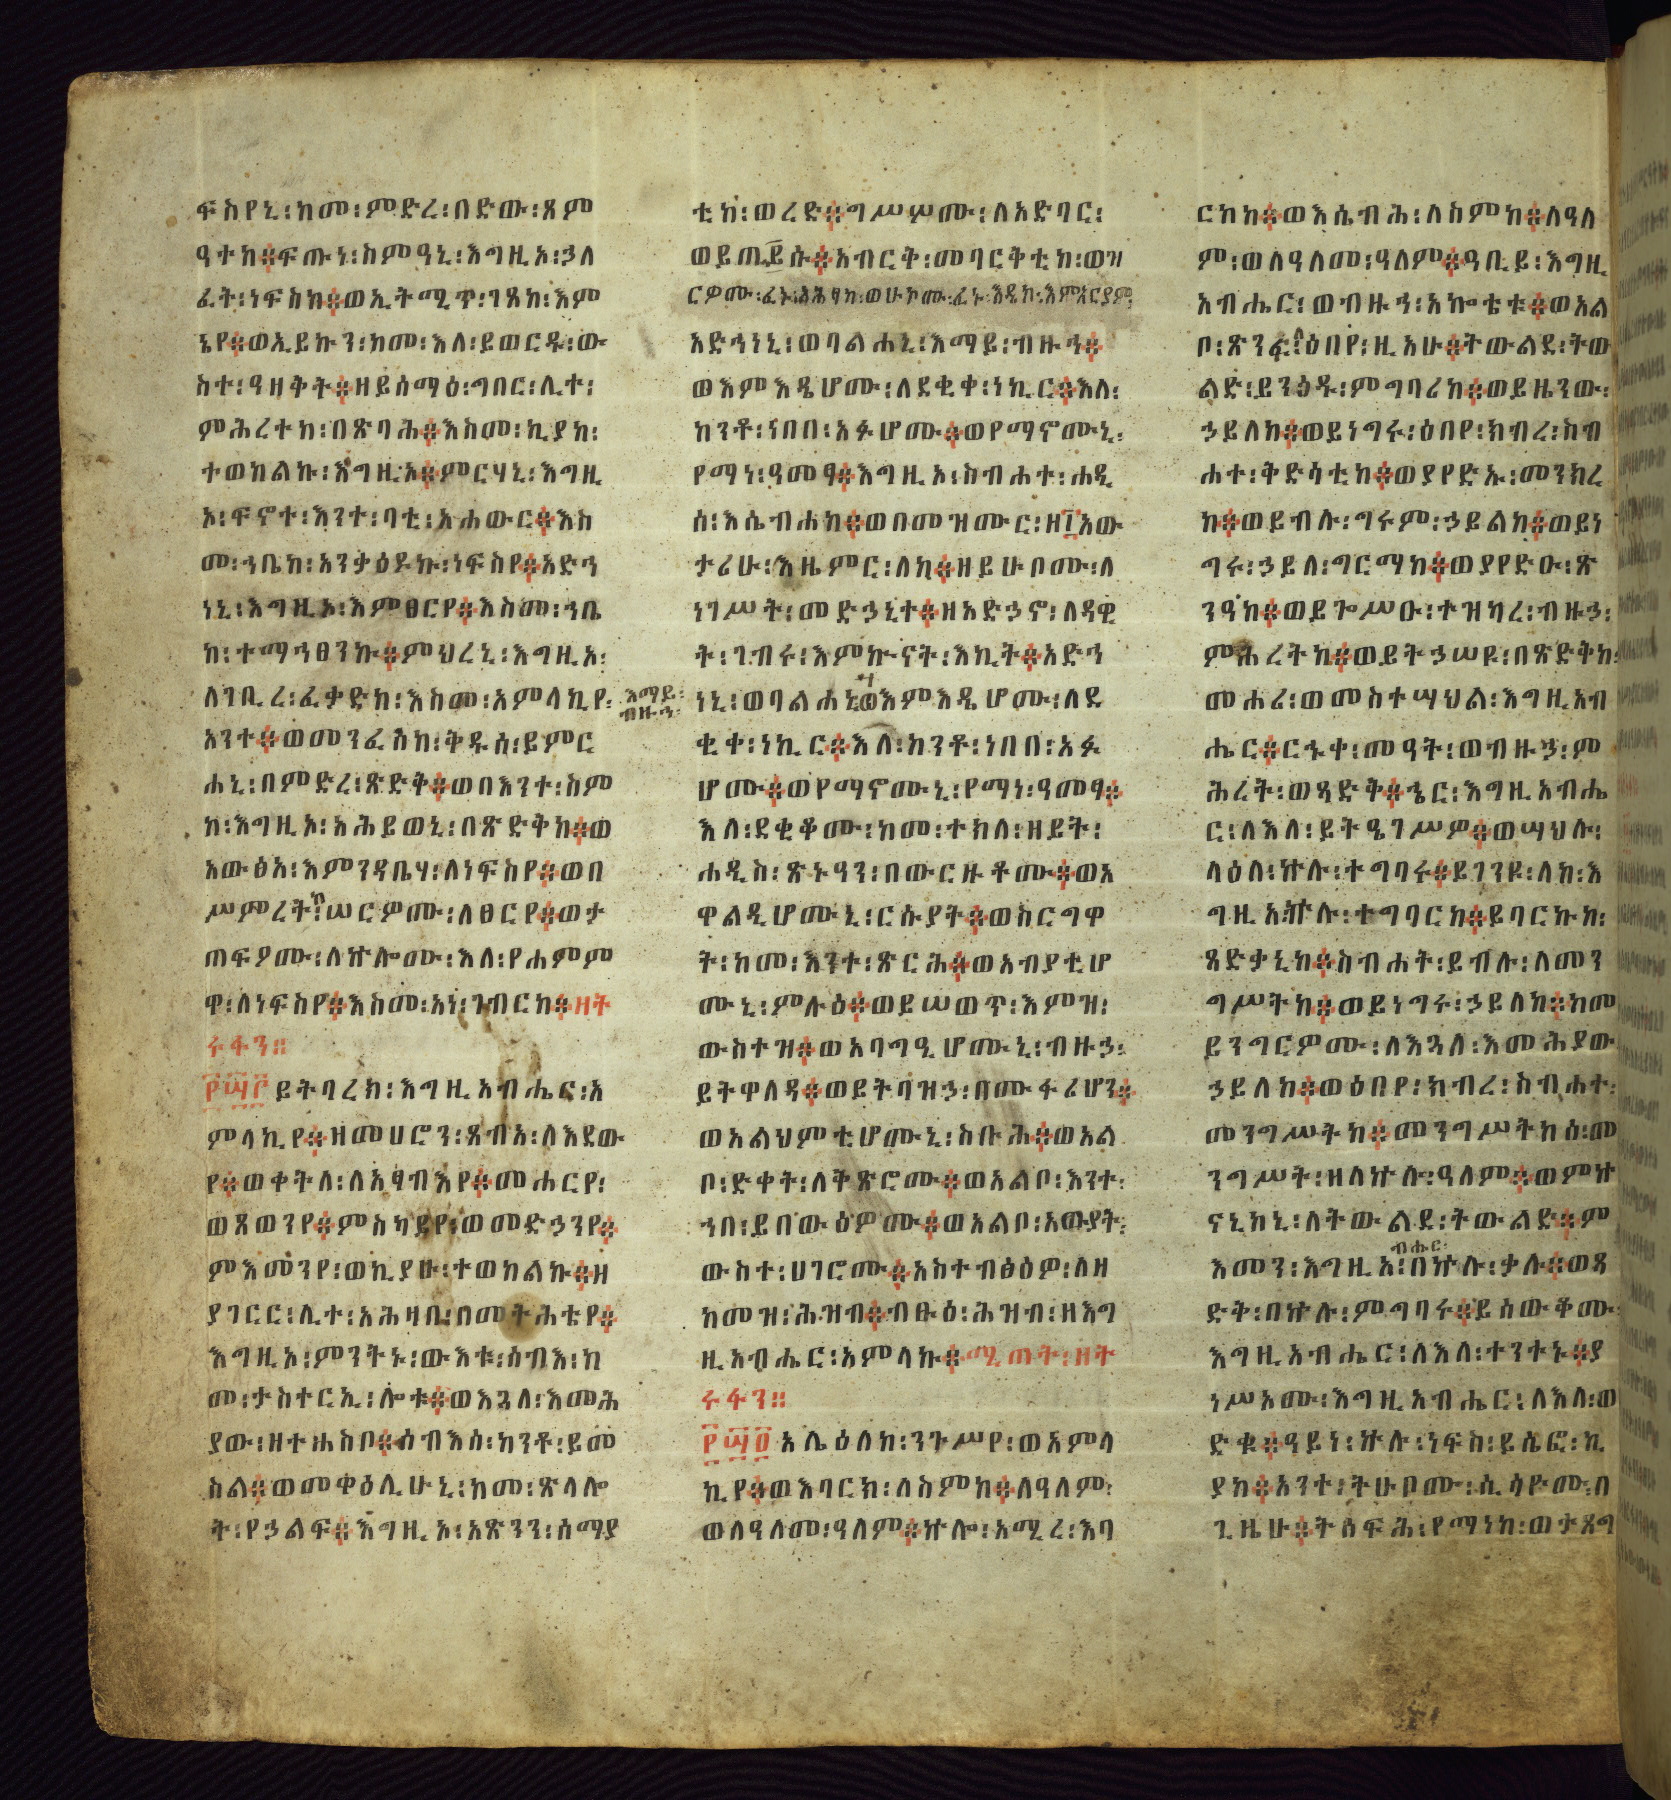 ፍስየኒ፡ከመ፡ምድረ፡በድው፡ጸም
ዓተከ፨ፍጡነ፡ስምዓኒ፡እግዚአ፡ኃለ
ፈት፡ነፍስየ፨ወኢትሚጥ፡ገጸከ፡እም
ኔየ፨ወኢይኩን፡ከመ፡እለ፡ይወርዱ፡ው
ስተ፡ዓዘቅት፨ዘይሰማዕ፡ግበር፡ሊተ፡
ምሕረተከ፡በጽባሕ፨እስመ፡ኪያከ፡
ተወከልኩ፡እግዚአ፨ምርሃኒ፡እግዚ
አ፡ፍኖተ፡እንተ፡ባቲ፡አሐውር፨እስ
መ፡ኀቤከ፡አንቃዕዶኩ፡ነፍስየ፨አድኅ
ነኒ፡እግዚአ፡እምፀርየ፨እስመ፡ኀቤ
ከ፡ተማኅፀንኩ፨ምህረኒ፡እግዚአ፡
ለገቢረ፡ፈቃድከ፡እስመ፡አምላኪየ፡
አንተ፨ወመንፈስከ፡ቅዱስ፡ይምር
ሐኒ፡በምድረ፡ጽድቅ፨ወበእንተ፡ስም
ከ፡እግዚኦ፡አሕይወኒ፡በጽድቅከ፨ወ
አውፅአ፡እምንዳቤሃ፡ለነፍስየ፨ወበ
ሥምረትከ፡ሠርዎሙ፡ለፀርየ፨ወታ
ጠፍዖሙ፡ለኵሎሙ፡እለ፡የሐምም
ዋ፡ለነፍስየ፨እስመ፡አነ፡ገብርከ፨ዘት
ሩፋን።
፻፵፫ ይትባረክ፡እግዚአብሔር፡አ
ምላኪየ፨ዘመሀሮን፡ጸብአ፡ለእደው
የ፨ወቀትለ፡ለአፃብእየ፨መሐርየ፡
ወጸወንየ፨ምስካይየ፡ወመድኃንየ፨
ምእመንየ፡ወኪያሁ፡ተወከልኩ፨ዘ
ያገርር፡ሊተ፡አሕዛበ፡በመትሕቴየ፨
እግዚኦ፡ምንትኑ፡ውእቱ፡ሰብእ፡ከ
መ፡ታስተርኢ፡ሎቱ፨ወእጓለ፡እመሕ
ያው፡ዘተሐስቦ፨ሰብእሰ፡ከንቶ፡ይመ
ስል፨ወመዋዕሊሁኒ፡ከመ፡ጽላሎ
ት፡የኃልፍ፨እግዚኦ፡አጽንን፡ሰማያ
እማይ፡
ብዙኅ፡
ቲከ፡ወረድ፨ግሥሦሙ፡ለአድባር፡
ወይጠይሱ፨አብርቅ፡መባርቅቲከ፡ወዝ
ርዎሙ፡ፈኑ፡አሕፃከ፡ወሁኮሙ፡ፈኑ፡እዴከ፡እምአርያም፡
አድኅነኒ፡ወባልሐኒ፡እማይ፡ብዙኅ፨
ወእምእዴሆሙ፡ለደቂቀ፡ነኪር፨እለ፡
ከንቶ፡ነበበ፡አፉሆሙ፨ወየማኖሙኒ፡
የማነ፡ዓመፃ፨እግዚኦ፡ስብሐተ፡ሐዲ
ሰ፡እሴብሐከ፨ወበመዝሙር፡ዘ፲አው
ታሪሁ፡እዜምር፡ለከ፨ዘይሁቦሙ፡ለ
ነገሥት፡መድኃኒተ፨ዘአድኃኖ፡ለዳዊ
ት፡ገብሩ፡እምኲናት፡እኪት፨አድኅ
ነኒ፡ወባልሐኒ፡ወእምእዴሆሙ፡ለደ
ቂቀ፡ነኪር፨እለ፡ከንቶ፡ነበበ፡አፉ
ሆሙ፨ወየማኖሙኒ፡የማነ፡ዓመፃ፨
እለ፡ደቂቆሙ፡ከመ፡ተክለ፡ዘይት፡
ሐዲስ፡ጽኑዓን፡በውርዙቶሙ፨ወአ
ዋልዲሆሙኒ፡ርሱያት፨ወስርግዋ
ት፡ከመ፡እንተ፡ጽርሕ፨ወአብያቲሆ
ሙኒ፡ምሉዕ፨ወይሠወጥ፡እምዝ፡
ውስተዝ፨ወአባግዒሆሙኒ፡ብዙኃ፡
ይትዋለዳ፨ወይትባዝኃ፡በሙፋሪሆን፨
ወአልህምቲሆሙኒ፡ስቡሕ፨ወአል
ቦ፡ድቀት፡ለቅጽሮሙ፨ወአልቦ፡እንተ፡
ኀበ፡ይበውዕዎሙ፨ወአልቦ፡አውያት፡
ውስተ፡ሀገሮሙ፨አስተብፅዕዎ፡ለዘ
ከመዝ፡ሕዝብ፨ብፁዕ፡ሕዝብ፡ዘእግ
ዚአብሔር፡አምላኩ፨ሚጠት፡ዘት
ሩፋን።
፻፵፬ አሌዕለከ፡ንጉሥየ፡ወአምላ
ኪየ፨ወእባርክ፡ለስምከ፨ለዓለም፡
ወለዓለመ፡ዓለም፨ኵሎ፡አሚረ፡እባ
ርከከ፨ወእሴብሕ፡ለስምከ፨ለዓለ
ም፡ወለዓለመ፡ዓለም፨ዓቢይ፡እግዚ
አብሔር፡ወብዙኅ፡አኰቴቱ፨ወአል
ቦ፡ጽንፈ፡ዕበየ፡ዚአሁ፨ትውልደ፡ትው
ልድ፡ይንዕዱ፡ምግባሪከ፨ወይዜንው፡
ኃይለከ፨ወይነግሩ፡ዕበየ፡ክብረ፡ስብ
ሐተ፡ቅድሳቲከ፨ወያየድኡ፡መንክረ
ከ፨ወይብሉ፡ግሩም፡ኃይልከ፨ወይነ
ግሩ፡ኃይለ፡ግርማከ፨ወያየድዑ፡ጽ
ንዓከ፨ወይጐሥዑ፡ተዝካረ፡ብዙኃ፡
ምሕረትከ፨ወይትኃሠዩ፡በጽድቅከ፡
መሐሪ፡ወመስተሣህል፡እግዚአብ
ሔር፨ርኁቀ፡መዓት፡ወብዙኃ፡ም
ሕረት፡ወጻድቅ፨ኄር፡እግዚአብሔ
ር፡ለእለ፡ይትዔገሥዎ፨ወሣህሉ፡
ላዕለ፡ኵሉ፡ተግባሩ፨ይገንዩ፡ለከ፡እ
ግዚአ፡ኵሉ፡ተግባርከ፨ይባርኩከ፡
ጻድቃኒከ፨ስብሐት፡ይብሉ፡ለመን
ግሥትከ፨ወይነግሩ፡ኃይለከ፨ከመ
ይንግርዎሙ፡ለእጓለ፡እመሕያው
ኃይለከ፨ወዕበየ፡ክብረ፡ስብሐተ፡
መንግሥትከ፨መንግሥትከሰ፡መ
ንግሥት፡ዘለኵሉ፡ዓለም፨ወምኵ
ናኒከኒ፡ለትውልደ፡ትውልድ፨ም
እመን፡እግዚአብሔር፡በኵሉ፡ቃሉ፨ወጻ
ድቅ፡በኵሉ፡ምግባሩ፨ይሰውቆሙ
እግዚአብሔር፡ለእለ፡ተንተኑ፨ያ
ነሥኦሙ፡እግዚአብሔር፡ለእለ፡ወ
ድቁ፨ዓይነ፡ኵሉ፡ነፍስ፡ይሴፎ፡ኪ
ያከ፨አንተ፡ትሁቦሙ፡ሲሳዮሙ፡በ
ጊዜሁ፨ትሰፍሕ፡የማነከ፡ወታጸግ